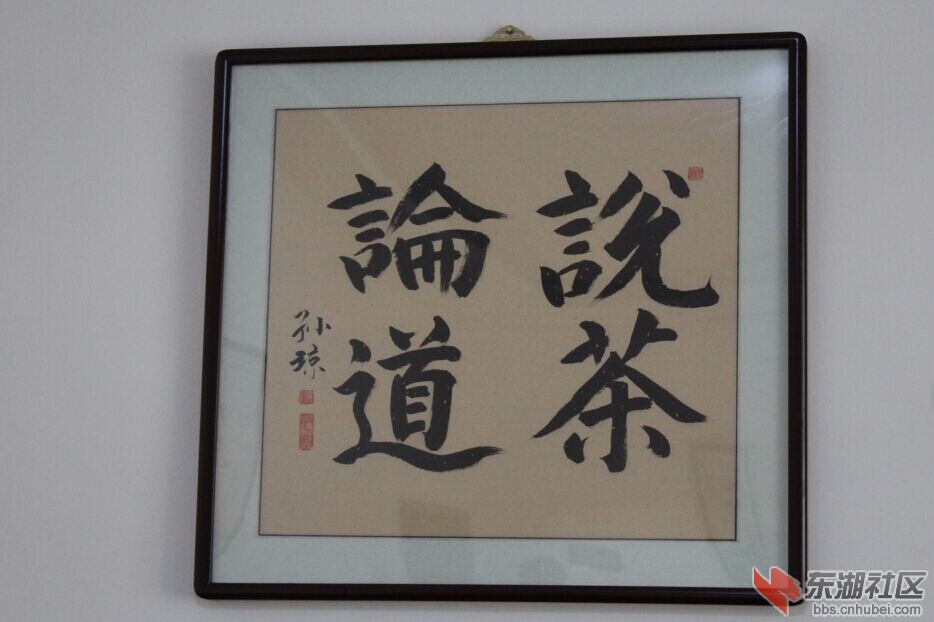 說茶
論道
孙琼
东湖社区
bbs.cnhubei.com